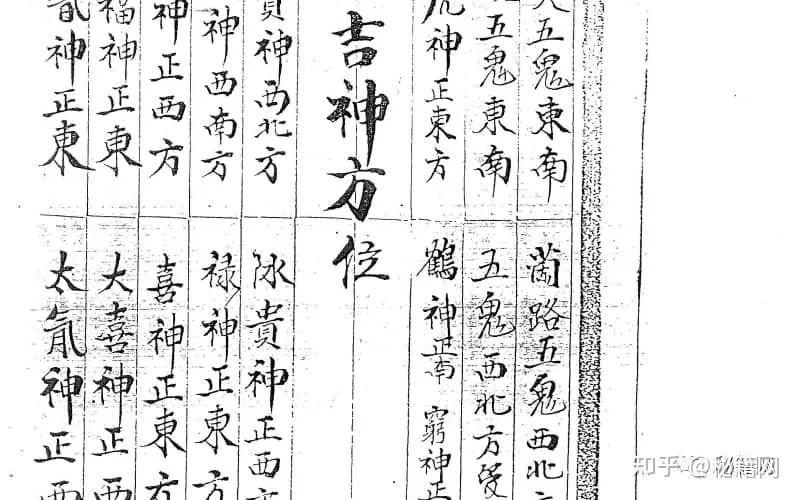 五鬼東南 路五鬼西北
五鬼東南 五鬼西北方受
神正東方 鶴神正南 窮神正
吉神方位
貴神西北方 貴神正西方
神西南方 禄神正東方
神正西方 喜神正東方
福神正東 大喜神正西
神正東 太神正西
知乎 @秘籍网